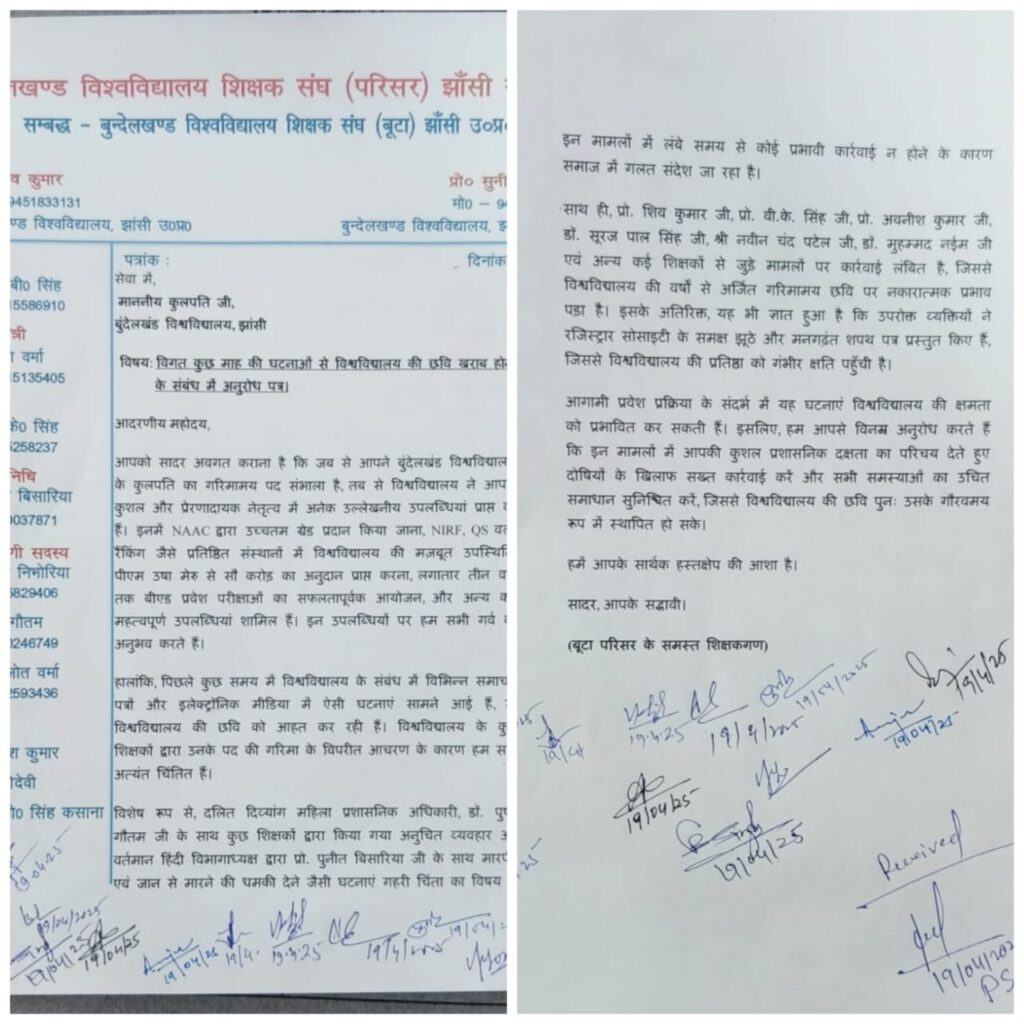 विश्वविद्यालय शिक्षक संघ (परिसर) झाँसी
सम्बद्ध – बुन्देलखण्ड विश्वविद्यालय शिक्षक संघ (बूटा) झाँसी उ०प्र०
व कुमार
9451833131
विश्वविद्यालय, झांसी उ0प्र0
प्रो० सुनी
मो0 – 9
बुन्देलखण्ड विश्वविद्यालय,
बी0 सिंह
5586910
त्री
वर्मा
5135405
के0 सिंह
258237
निधि
बिसारिया
0037871
गी सदस्य
निमोरिया
829406
गौतम
0246749
नोत वर्मा
2593436
श कुमार
देवी
ी0 सिंह कसाना
पत्रांक :
दिनांक
सेवा में,
माननीय कुलपति जी,
बुंदेलखंड विश्वविद्यालय, झांसी
विषय: विगत कुछ माह की घटनाओं से विश्वविद्यालय की छवि खराब हो
के संबंध में अनुरोध पत्र।
आदरणीय महोदय,
आपको सादर अवगत कराना है कि जब से आपने बुंदेलखंड विश्वविद्याल
के कुलपति का गरिमामय पद संभाला है, तब से विश्वविद्यालय ने आप
कुशल और प्रेरणादायक नेतृत्व में अनेक उल्लेखनीय उपलब्धियां प्राप्त
हैं। इनमें NAAC द्वारा उच्चतम ग्रेड प्रदान किया जाना, NIRF, QS व
रैंकिंग जैसे प्रतिष्ठित संस्थानों में विश्वविद्यालय की मज़बूत उपस्थि
पीएम उषा मेरु से सौ करोड़ का अनुदान प्राप्त करना, लगातार तीन व
तक बीएड प्रवेश परीक्षाओं का सफलतापूर्वक आयोजन, और अन्य क
महत्वपूर्ण उपलब्धियां शामिल हैं। इन उपलब्धियों पर हम सभी गर्व
अनुभव करते हैं।
हालांकि, पिछले कुछ समय में विश्वविद्यालय के संबंध में विभिन्न समाच
पत्रों और इलेक्ट्रॉनिक मीडिया में ऐसी घटनाएं सामने आई हैं,
विश्वविद्यालय की छवि को आहत कर रही हैं। विश्वविद्यालय के कु
शिक्षकों द्वारा उनके पद की गरिमा के विपरीत आचरण के कारण हम स
अत्यंत चिंतित हैं।
विशेष रूप से, दलित दिव्यांग महिला प्रशासनिक अधिकारी, डॉ. पु
गौतम जी के साथ कुछ शिक्षकों द्वारा किया गया अनुचित व्यवहार
वर्तमान हिंदी विभागाध्यक्ष द्वारा प्रो. पुनीत बिसारिया जी के साथ मार
एवं जान से मारने की धमकी देने जैसी घटनाएं गहरी चिंता का विषय
09/04/2025
19/04/25
19/04/25
19/04/25
19/4
19.4.25
19/4/2025
इन मामलों में लंबे समय से कोई प्रभावी कार्रवाई न होने के कारण
समाज में गलत संदेश जा रहा है।
साथ ही, प्रो. शिव कुमार जी, प्रो. वी.के. सिंह जी, प्रो. अवनीश कुमार जी,
डॉ. सूरज पाल सिंह जी, श्री नवीन चंद पटेल जी, डॉ. मुहम्मद नईम जी
एवं अन्य कई शिक्षकों से जुड़े मामलों पर कार्रवाई लंबित है, जिससे
विश्वविद्यालय की वर्षों से अर्जित गरिमामय छवि पर नकारात्मक प्रभाव
पड़ा है। इसके अतिरिक्त, यह भी ज्ञात हुआ है कि उपरोक्त व्यक्तियों ने
रजिस्ट्रार सोसाइटी के समक्ष झूठे और मनगढ़ंत शपथ पत्र प्रस्तुत किए हैं,
जिससे विश्वविद्यालय की प्रतिष्ठा को गंभीर क्षति पहुँची है।
आगामी प्रवेश प्रक्रिया के संदर्भ में यह घटनाएं विश्वविद्यालय की क्षमता
को प्रभावित कर सकती हैं। इसलिए, हम आपसे विनम्र अनुरोध करते हैं
कि इन मामलों में आपकी कुशल प्रशासनिक दक्षता का परिचय देते हुए
दोषियों के खिलाफ सख्त कार्रवाई करें और सभी समस्याओं का उचित
समाधान सुनिश्चित करें, जिससे विश्वविद्यालय की छवि पुनः उसके गौरवमय
रूप में स्थापित हो सके।
हमें आपके सार्थक हस्तक्षेप की आशा है।
सादर, आपके सद्भावी।
(बूटा परिसर के समस्त शिक्षकगण)
19.4.25
19/4/2025
19/04/2025
19/4/25
19/04/25
19/04/25
19/04/25
Received
19/04/202
PS